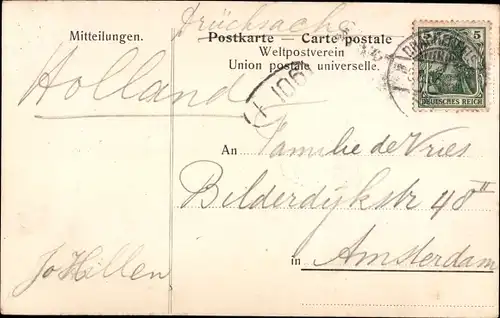 Drucksache
Mitteilungen.
Postkarte — Carte postale
Weltpostverein
Union postale universelle.
5 5
DEUTSCHES REICH
Holland
1061
An Familie de Vries
Bilderdijkstr 48 II
in Amsterdam
Jo Hillen